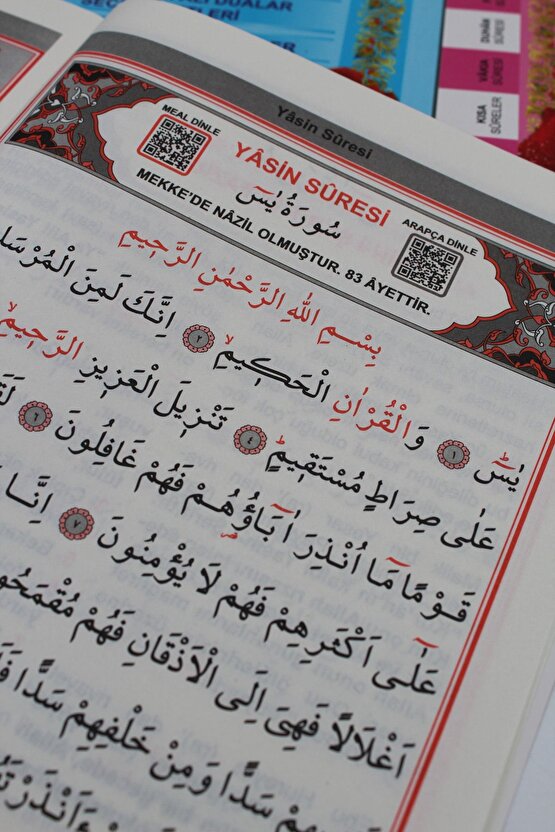 DUALAR
DUHÂN
SÛRESİ
VÂKIA
SÛRESİ
KISA
SÛRELER
Yâsin Sûresi
MEAL DİNLE
YÂSİN SÛRESİ
سُورَةُ يٰسٓ
ARAPÇA DİNLE
MEKKE'DE NÂZİL OLMUŞTUR. 83 ÂYETTİR.
بِسْمِ اللّٰهِ الرَّحْمٰنِ الرَّحِيمِ
يٰسٓۜ ﴿١﴾ وَالْقُرْاٰنِ الْحَكِيمِۙ ﴿٢﴾ اِنَّكَ لَمِنَ
عَلٰى صِرَاطٍ مُسْتَقِيمٍۜ ﴿٤﴾ تَنْزِيلَ الْعَزِيزِ الرَّحِيمِۙ
قَوْمًا مَٓا اُنْذِرَ اٰبَٓاؤُ۬هُمْ فَهُمْ غَافِلُونَ ﴿٦﴾
عَلٰٓى اَكْثَرِهِمْ فَهُمْ لَا يُؤْمِنُونَ ﴿٧﴾ اِنَّا
اَغْلَالًا فَهِيَ اِلَى الْاَذْقَانِ فَهُمْ
سَدًّا وَمِنْ خَلْفِهِمْ سَدًّا